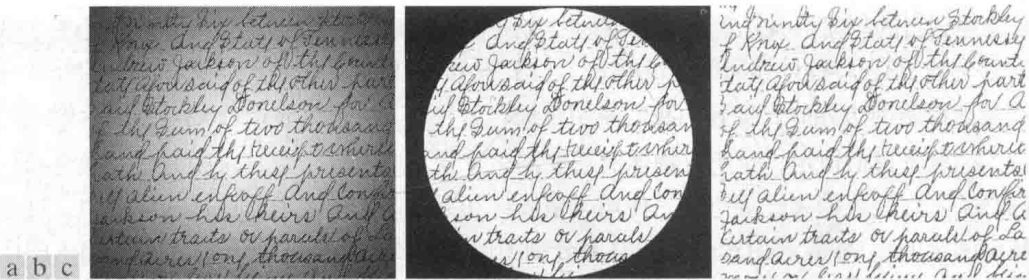 ninety Six between Stockley
Knox And State of Tennessee
Andrew Jackson of the
Aforesaid of the other part
Stockley Donelson for
of the Sum of two thousand
hand paid the receipt
And by these presents
alien enfeoff And
Jackson his heirs And
Certain traits or parcels of La
sand acres long thousand acre
between
And State of
Jackson of the
Aforesaid of the other
Stockley Donelson for
the Sum of two
paid the receipt
And by these
alien enfeoff And
his heirs
traits or parcels
acres long
ninety Six between Stockley
Knox And State of Tennessee
Andrew Jackson of the
Aforesaid of the other part
Stockley Donelson for A
of the Sum of two thousand
hand paid the receipt
hath And by these presents
alien enfeoff And
Jackson his heirs And A
Certain traits or parcels of La
sand acres long thousand acre
a b c